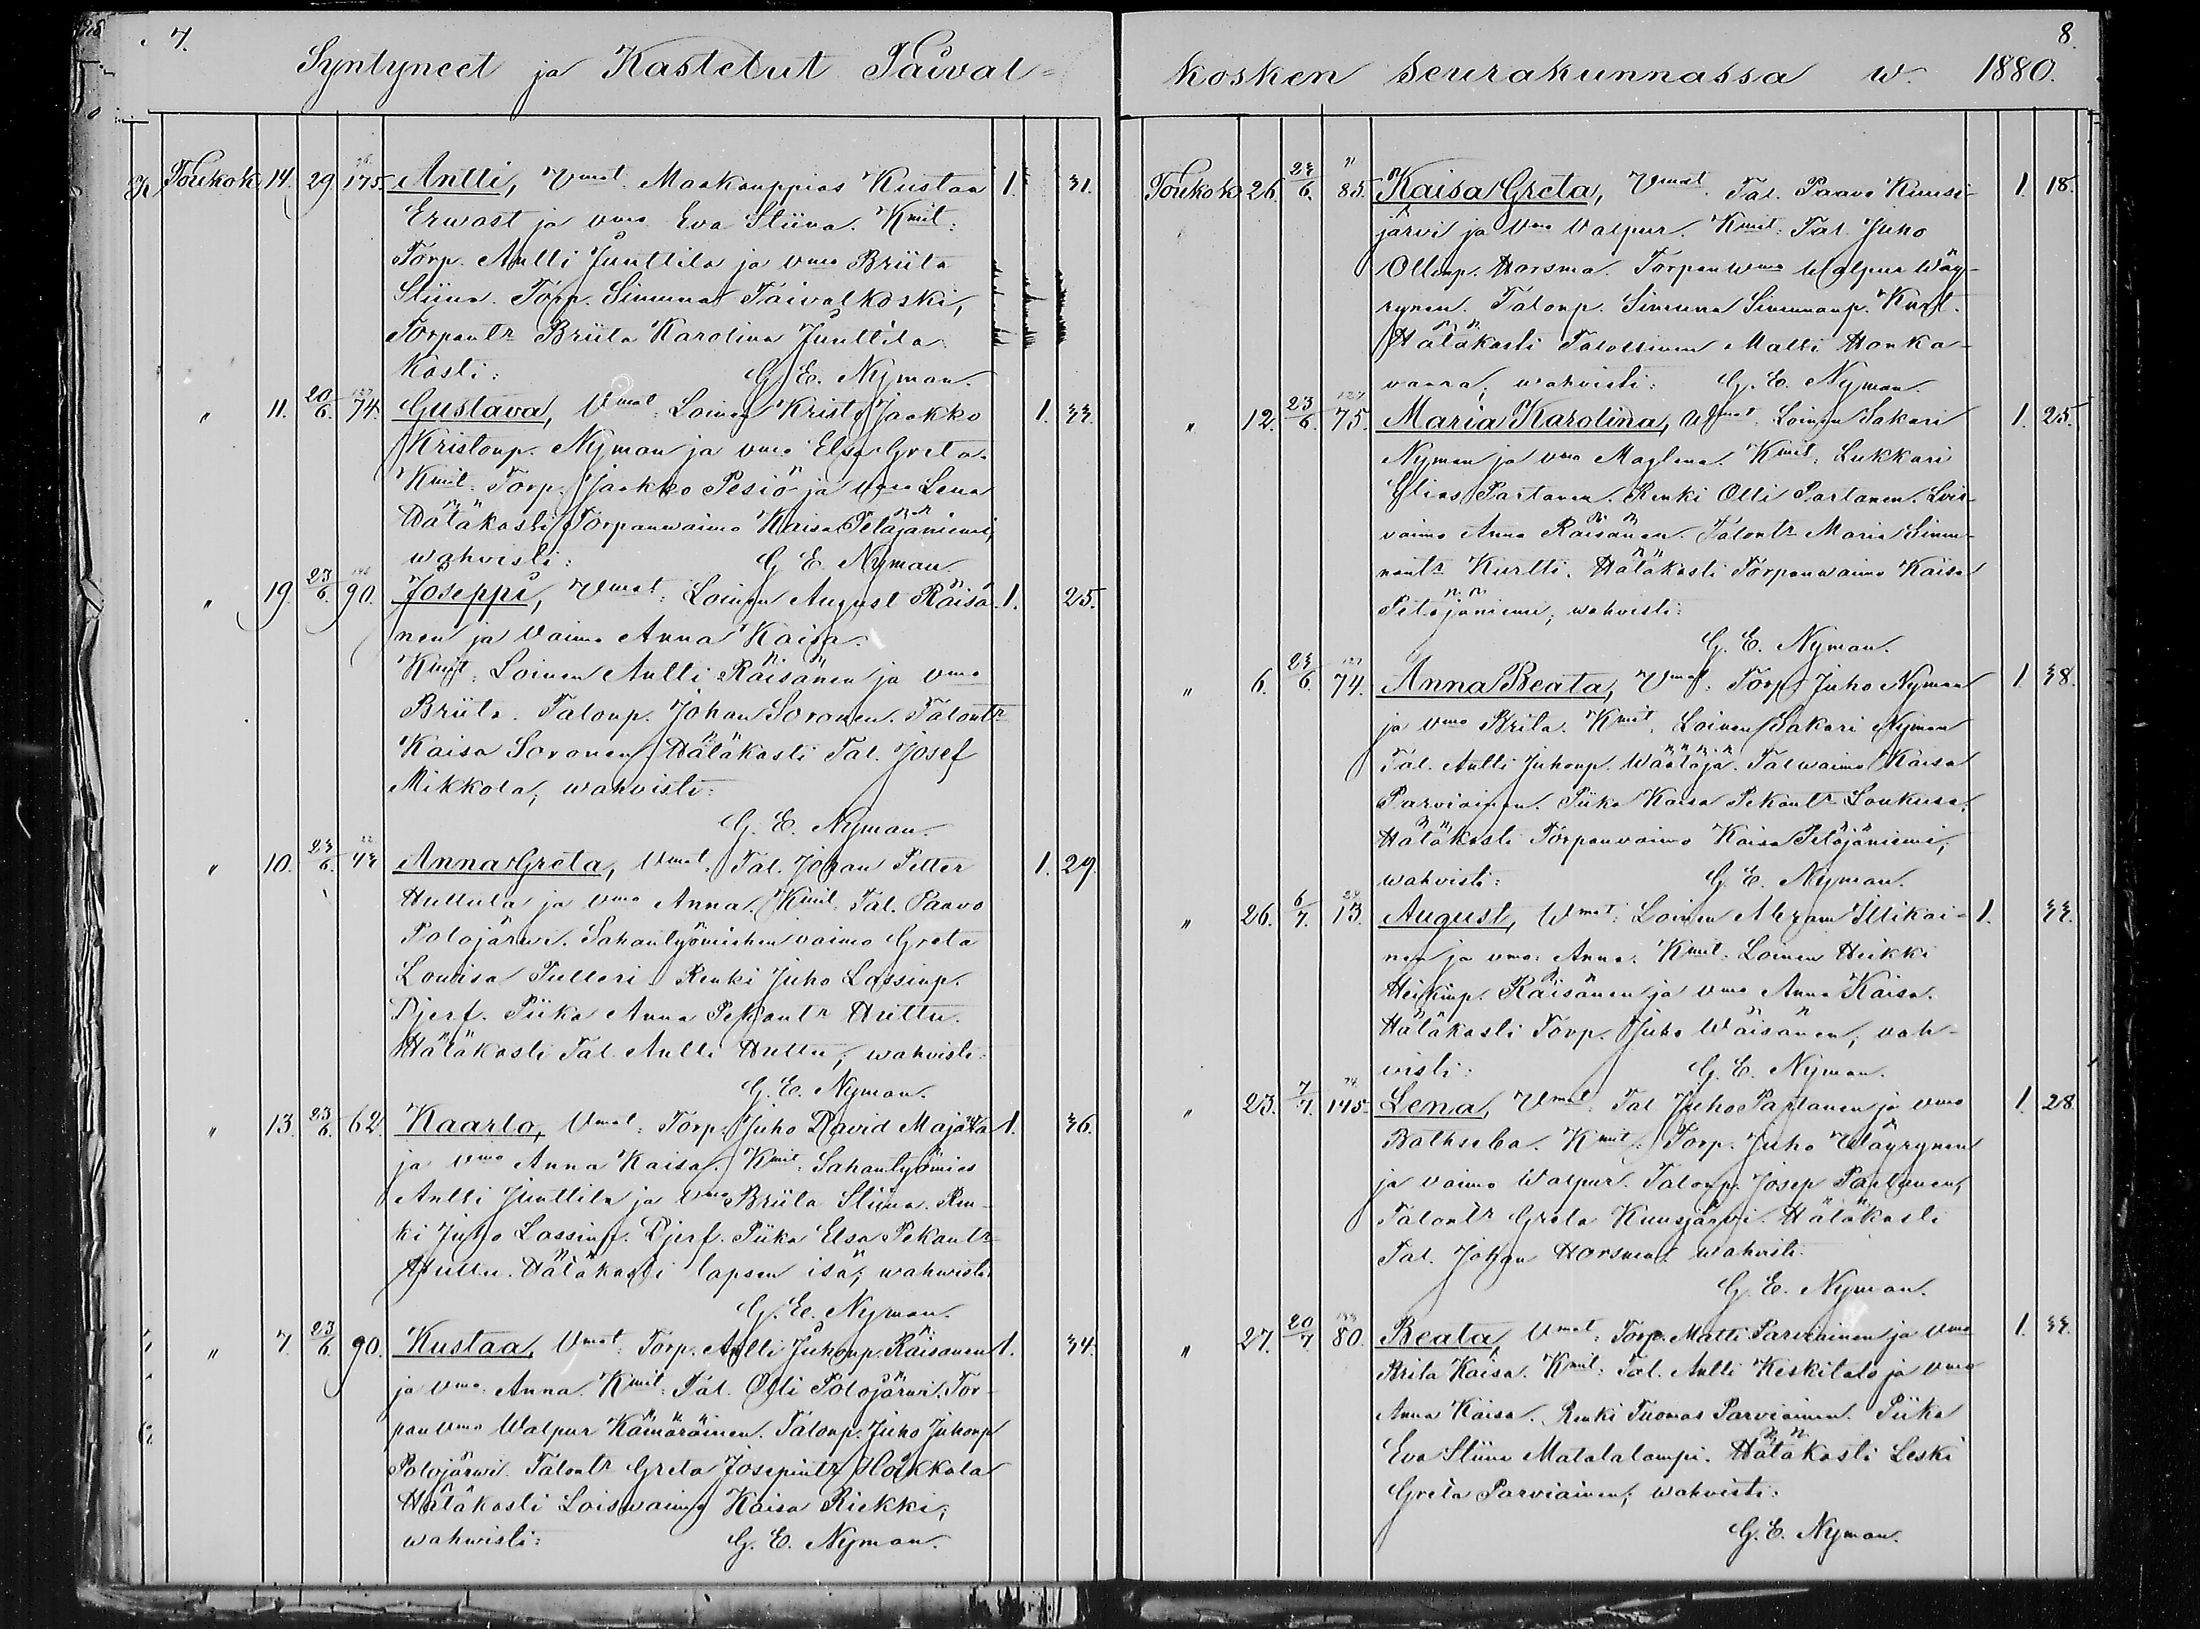 7.
Syntyneet ja Kastetut Taival=
Toukok. 14. 29 175. Antti, Vmat. Maakauppias Kustaa 1. 31.
Erwast ja vmo Eva Stiina. Kmit:
Torp. Antti Juuttila ja vmo Briita
Stiina. Torp. Simuna Taivalkoski,
Torpantr Briita Karolina Juuttila.
Kasti: G. E. Nyman.
" 11. 20/6. 74. Gustava, Vmat: Loinen Jaakko 1. 33.
Kristonp. Nyman ja vmo Elsa Greta.
Kmit: Torp. Jaakko Pesiö ja vmo Lena
Hätäkasti Torpanwaimo Kaisa Petäjäniemi,
wahvisti: G. E. Nyman
" 19. 23/6. 90. Joseppi, Vmat: Loinen August Räisä- 1. 25.
nen ja Vaimo Anna Kaisa.
Kmit: Loinen Antti Räisänen ja vmo
Briita. Talonp. Johan Soronen. Talontr
Kaisa Soronen Hätäkasti Tal. Josef
Mikkola; wahvisti:
G. E. Nyman.
" 10. 23/6. 43 Anna Greta, Vmat: Tal. Johan Petter 1. 29.
Huttula ja vmo Anna. Kmit: Tal. Paavo
Polojärwi. Sahantyömiehen vaimo Greta
Lowisa Tulleri Renki Juho Lassinp.
Djerf. Piika Anna Pekantr Huttu.
Hätäkasti Tal. Antti Huttu; wahvisti:
G. E. Nyman.
" 13. 23/6. 62. Kaarlo, Vmat: Torp. Juho David Majava 1. 36.
ja vmo Anna Kaisa. Kmit: Sahantyömies
Antti Juuttila ja vmo Briita Stiina. Ren-
ki Juho Lassinp. Djerf. Piika Elsa Pekantr
Huttu. Hätäkasti lapsen isä; wahwisti
G. E. Nyman.
" 7. 23/6. 90. Kustaa, Vmat: Torp. Antti Juhonp. Räisänen 1. 34.
ja vmo: Anna. Kmit: Tal. Olli Polojärwi. Tor-
pan vmo Walpur Kämäräinen. Talonp. Juho Juhonp
Polojärwi. Talontr Greta Josepintr Hoikkala
Hätäkasti Loiswaimo Kaisa Riekki;
wahwisti: G. E. Nyman.
8.
kosken Seurakunnassa w. 1880.
Toukok. 26. 23/6. 85. Kaisa Greta, Vmat. Tal. Paavo Kuusi- 1. 18.
järvi ja vmo Valpur. Kmit: Tal. Juho
Ollinp. Horsma. Torpan wmo Walpur Wäy-
rynen. Talonp. Simuna Simunanp. Kurt.
Hätäkasti Talollinen Matti Honka-
vaara; wahvisti: G. E. Nyman
" 12. 23/6. 75. Maria Karolina, Vmat: Loinen Sakari 1. 25.
Nyman ja vmo Maglena. Kmit: Lukkari
Elias Partanen. Renki Olli Partanen. Lois-
vaimo Anna Räisänen. Talontr Maria Simu-
nantr Kurtti. Hätäkasti Torpanwaimo Kaisa
Petäjäniemi; wahvisti:
G. E. Nyman.
" 6. 23/6. 74. Anna Beata, Vmat: Torp. Juho Nyman 1. 38.
ja vmo Brita. Kmit: Loinen Sakari Nyman
Tal. Antti Juhonp. Määttäjä. Talwaimo Kaisa
Parviainen. Piika Kaisa Pekantr Loukusa.
Hätäkasti Torpanvaimo Kaisa Petäjäniemi,
wahvisti: G. E. Nyman.
" 26. 6/7. 13. August, Vmat: Loinen Abram Illikai- 1. 33.
nen ja vmo: Anna. Kmit: Loinen Heikki
Heikinp. Räisänen ja vmo Anna Kaisa.
Hätäkasti Torp. Juho Wäisänen; vah-
visti: G. E. Nyman.
" 23. 7/7. 145. Lena, Vmat: Tal. Juho Partanen ja vmo 1. 28
Bathseba. Kmit: Torp. Juho Wäyrynen
ja vaimo Walpur. Talonp. Josep Partanen,
Talontr Greta Kuusjärwi. Hätäkasti
Tal. Johan Horsma; wahvisti.
G. E. Nyman.
" 27. 20/7. 80. Beata, Vmat: Torp. Matti Parviainen ja vmo 1. 33.
Brita Kaisa. Kmit: Tal. Antti Keskitalo ja vmo
Anna Kaisa. Renki Tuomas Parviainen. Piika
Eva Stiina Matalalampi. Hätäkasti Leski
Greta Parviainen; wahvisti:
G. E. Nyman.